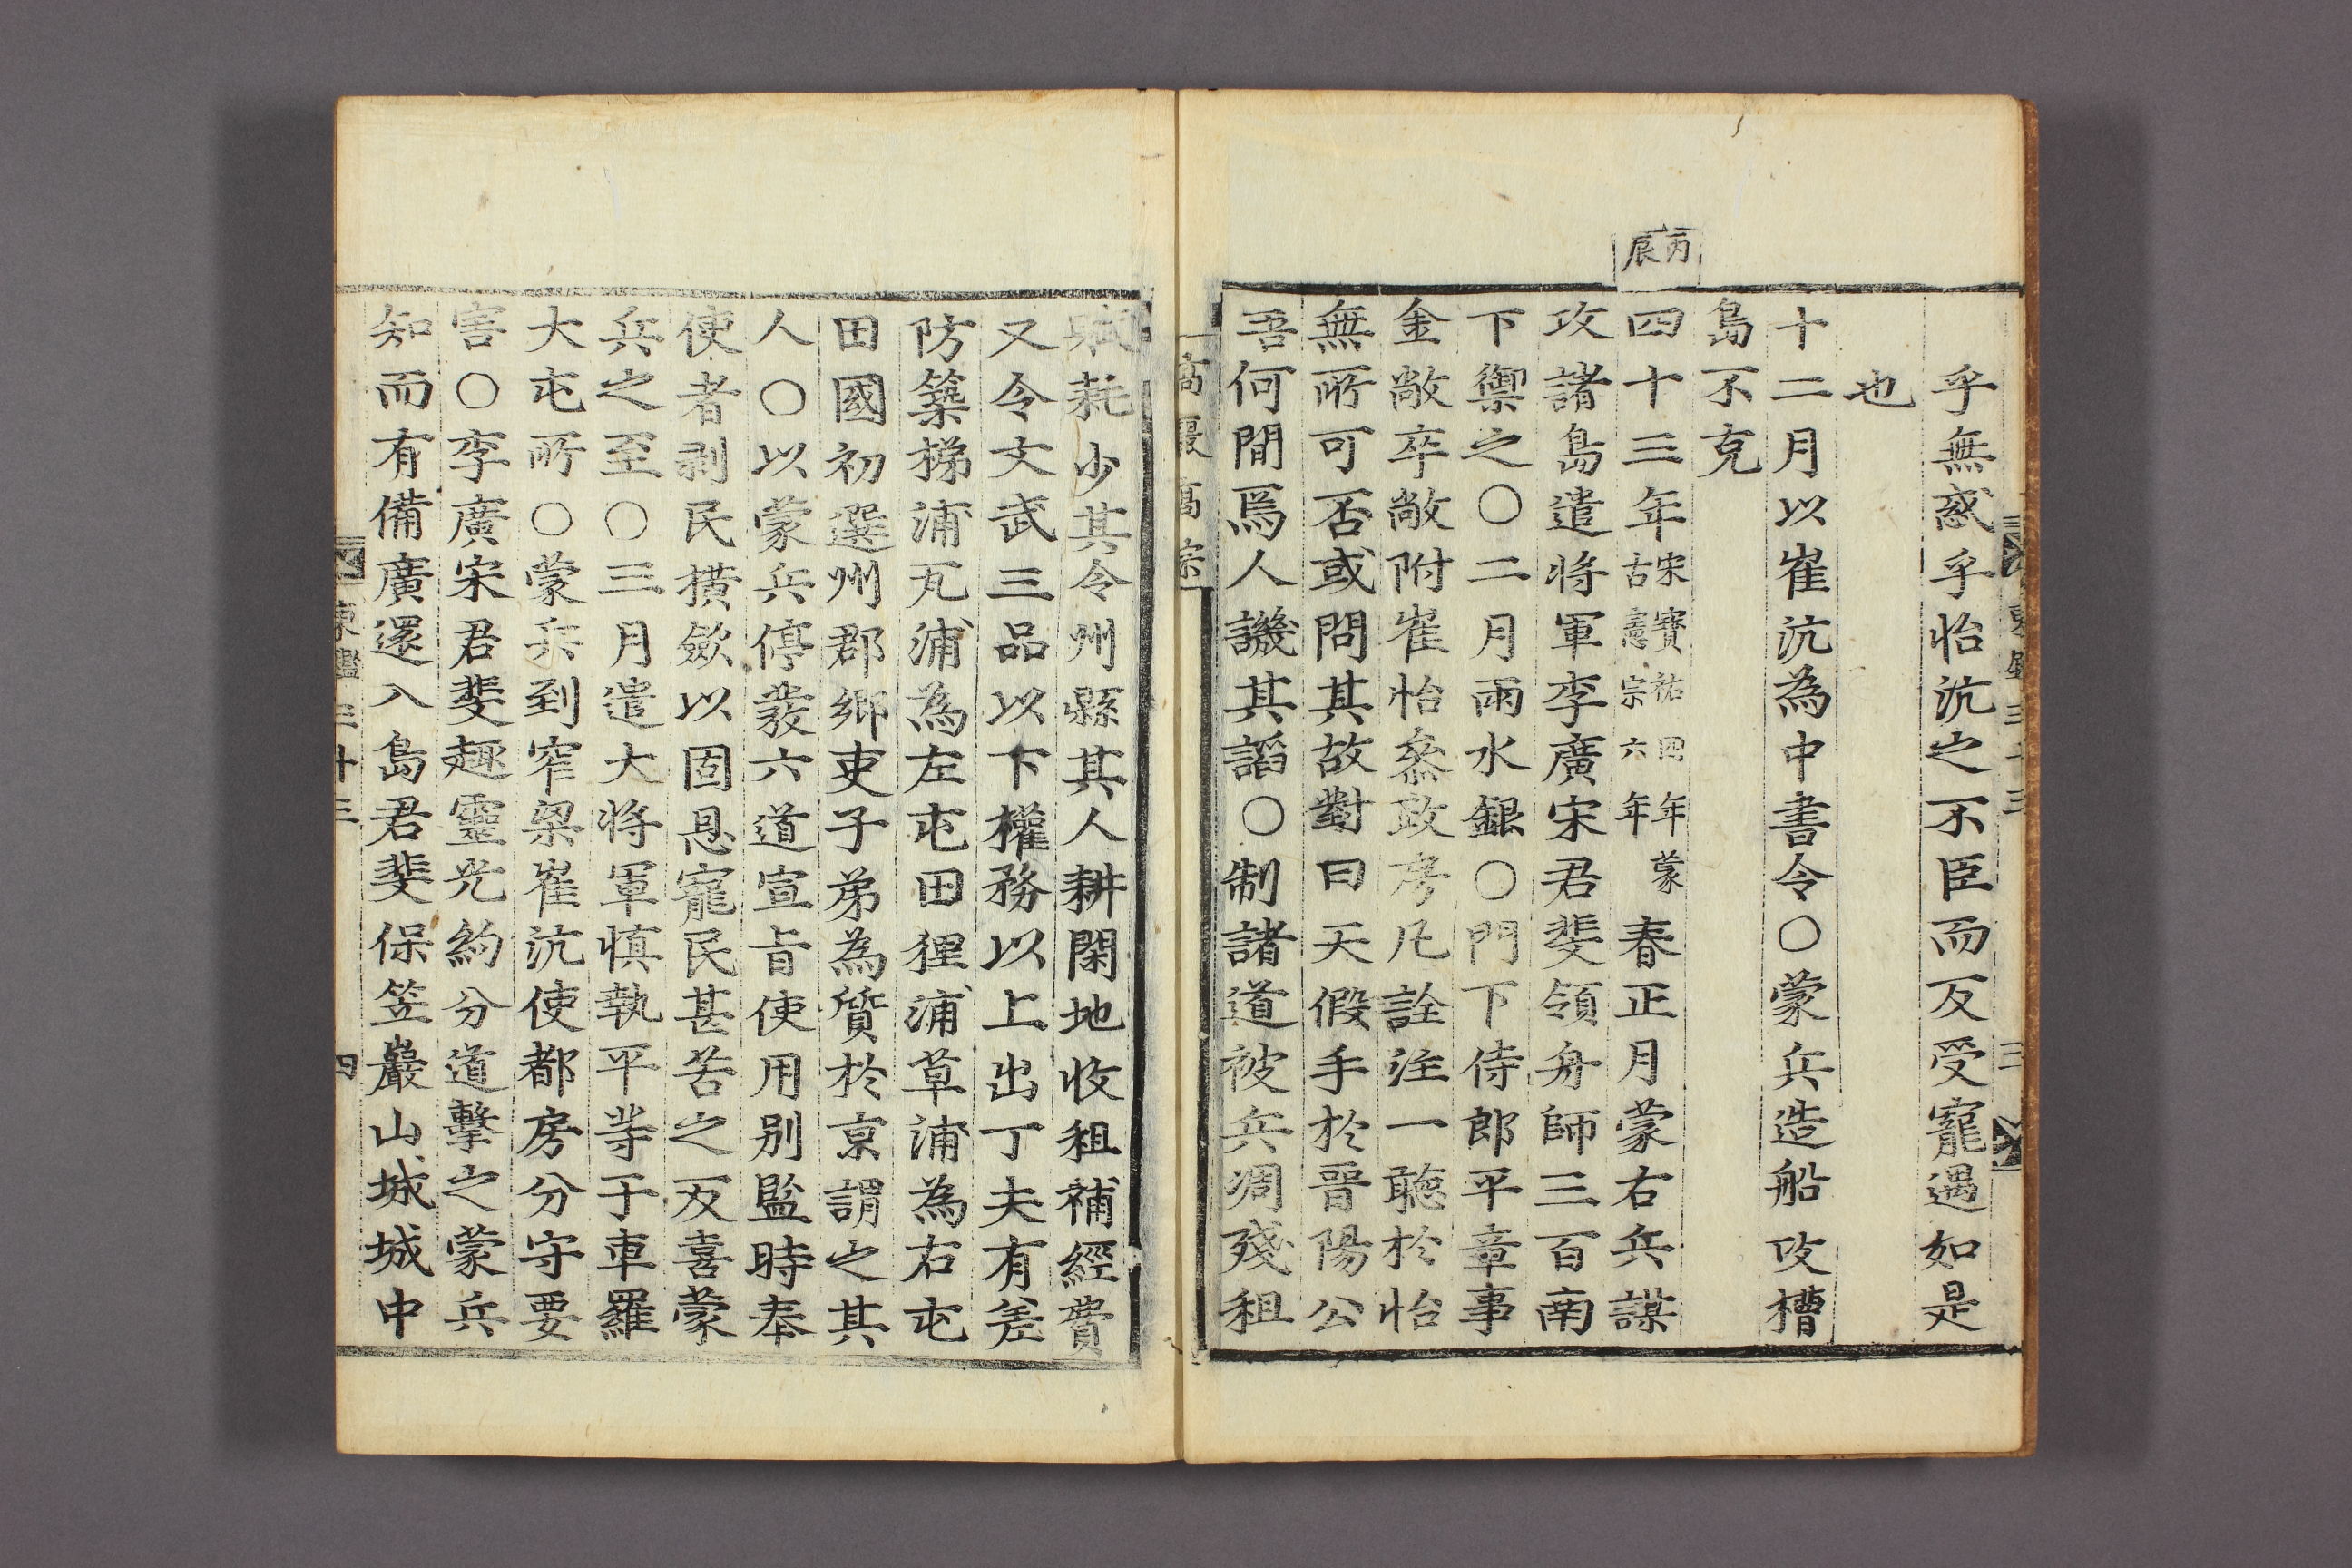 乎無惑乎怡沆之不臣而反受寵遇如是
也
十二月以崔沆為中書令○蒙兵造船攻槽
島不克
丙辰
四十三年宋寶祐四年蒙古憲宗六年春正月蒙右兵謀
攻諸島遣將軍李廣宋君斐領舟師三百南
下禦之○二月雨水銀○門下侍郎平章事
金敞卒敞附崔怡叅政房凡詮注一聽於怡
無所可否或問其故對曰天假手於晉陽公
吾何間焉人譏其謟○制諸道被兵凋殘租
高麗高宗
賦耗少其令州縣其人耕閑地收租補經費
又令文武三品以下權務以上出丁夫有差
防築梯浦瓦浦為左屯田狸浦草浦為右屯
田國初選州郡鄉吏子弟為質於京謂之其
人○以蒙兵停發六道宣旨使用別監時奉
使者剥民横歛以固恩寵民甚苦之反喜蒙
兵之至○三月遣大將軍慎執平等于車羅
大屯所○蒙兵到窄梁崔沆使都房分守要
害○李廣宋君斐趣靈光約分道擊之蒙兵
知而有備廣還入島君斐保笠巖山城城中
東鑑三十三 四